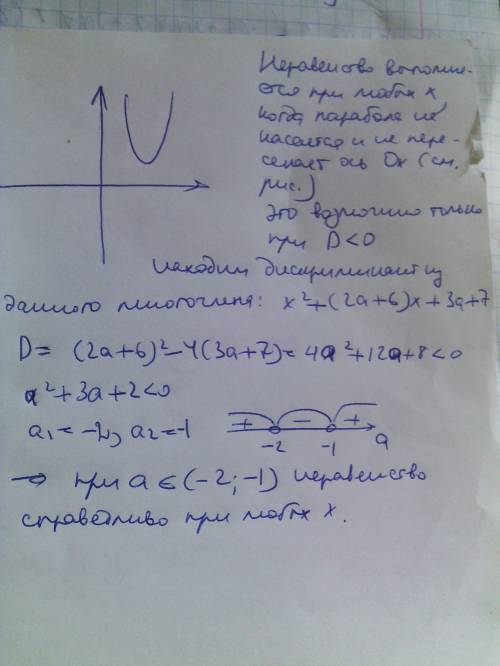 Неравенство выполня-
ется при любых x,
когда парабола не
касается и не пере-
секает ось Ox (см.
рис.)
Это возможно только
при D<0
находим дискриминант из
данного многочлена: x²+(2a+6)x+3a+7
D= (2a+6)²-4(3a+7)=4a²+12a+8<0
a²+3a+2<0
a₁=-2, a₂=-1
+ - +
-2 -1 a
→ при a∈(-2;-1) неравенство
справедливо при любых x.